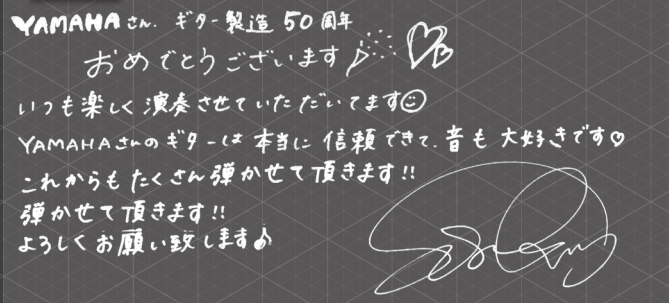 YAMAHAさん. ギター製造 50周年
おめでとうございます
いつも楽しく演奏させていただいてます
YAMAHAさんのギターは本当に信頼できて、音も大好きです♡
これからもたくさん弾かせて頂きます!!
弾かせて頂きます!!
よろしくお願い致します♪